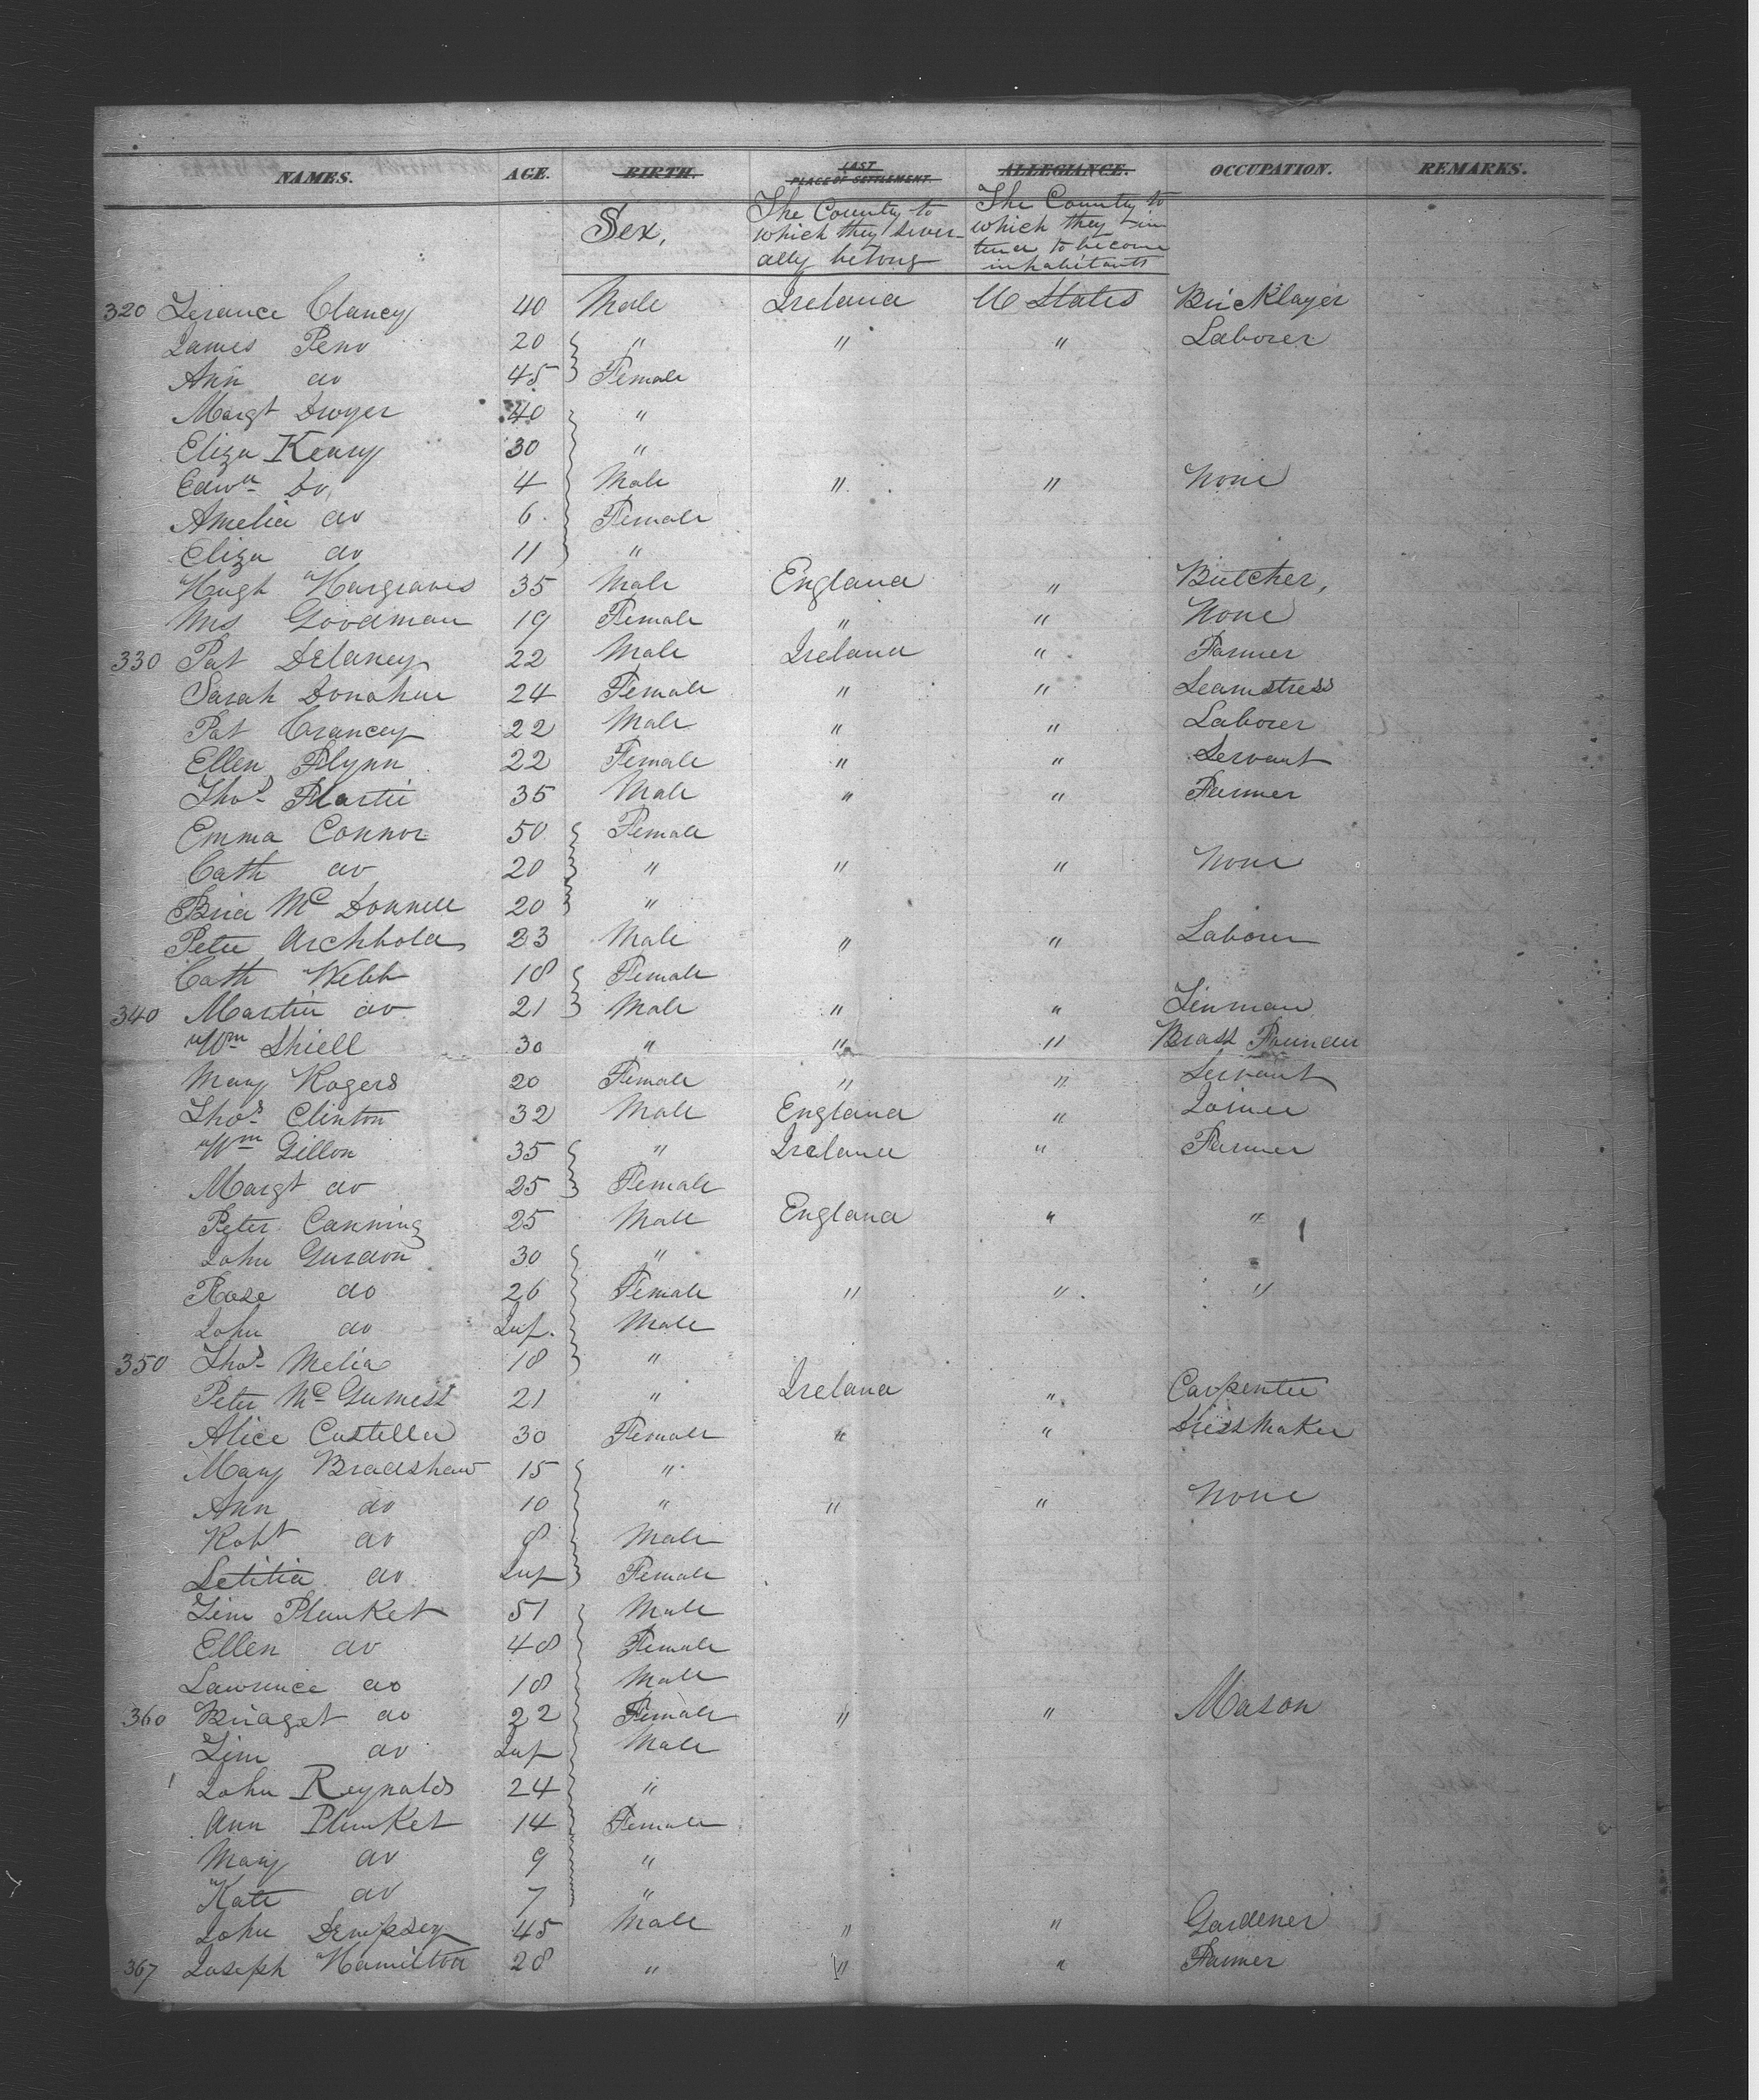 NAMES. AGE. BIRTH. LAST PLACE OF SETTLEMENT. ALLEGIANCE. OCCUPATION. REMARKS.
Sex, The County to which they sever-ally belong The County to which they in-tend to become inhabitants
320 Terance Clancy 40 Male Ireland U States Bricklayer
James Penv 20 " " " Laborer
Ann do 45 Female
Margt Dwyer 40 "
Eliza Keary 30 "
Edwd Do 4 Male " " None
Amelia do 6 Female
Eliza do 11 "
Hugh Hargraves 35 Male England " Butcher,
Mrs Goodman 19 Female " " None
330 Pat Delaney 22 Male Ireland " Farmer
Sarah Donahue 24 Female " " Seamstress
Pat Crancey 22 Male " " Laborer
Ellen Flynn 22 Female " " Servant
Thos Martin 35 Male " " Farmer
Emma Connor 50 Female
Cath do 20 " " " None
Brid McDonnell 20 "
Peter Archbold 23 Male " " Laborer
Cath Webb 18 Female
340 Martin do 21 Male " " Tinman
Wm Shiell 30 " " " Brass Founder
Mary Rogers 20 Female " " Servant
Thos Clinton 32 Male England " Joiner
Wm Gillon 35 " Ireland " Farmer
Margt do 25 Female
Peter Canning 25 Male England " "
John Gurdon 30 "
Rose do 26 Female " " "
John do Inf. Male
350 Thos Melia 18 "
Peter McGumest 21 " Ireland " Carpenter
Alice Costello 30 Female " " Dress Maker
Mary Bradshaw 15 "
Ann do 10 " " " None
Robt do 8 Male
Letitia do Inf Female
Tim Plunket 51 Male
Ellen do 48 Female
Lawrence do 18 Male
360 Bridget do 22 Female " " Mason
Tim do Inf Male
John Reynolds 24 "
Ann Plunket 14 Female
Mary do 9 "
Kate do 7 "
John Dempsey 45 Male " " Gardener
367 Joseph Hamilton 28 " " " Farmer